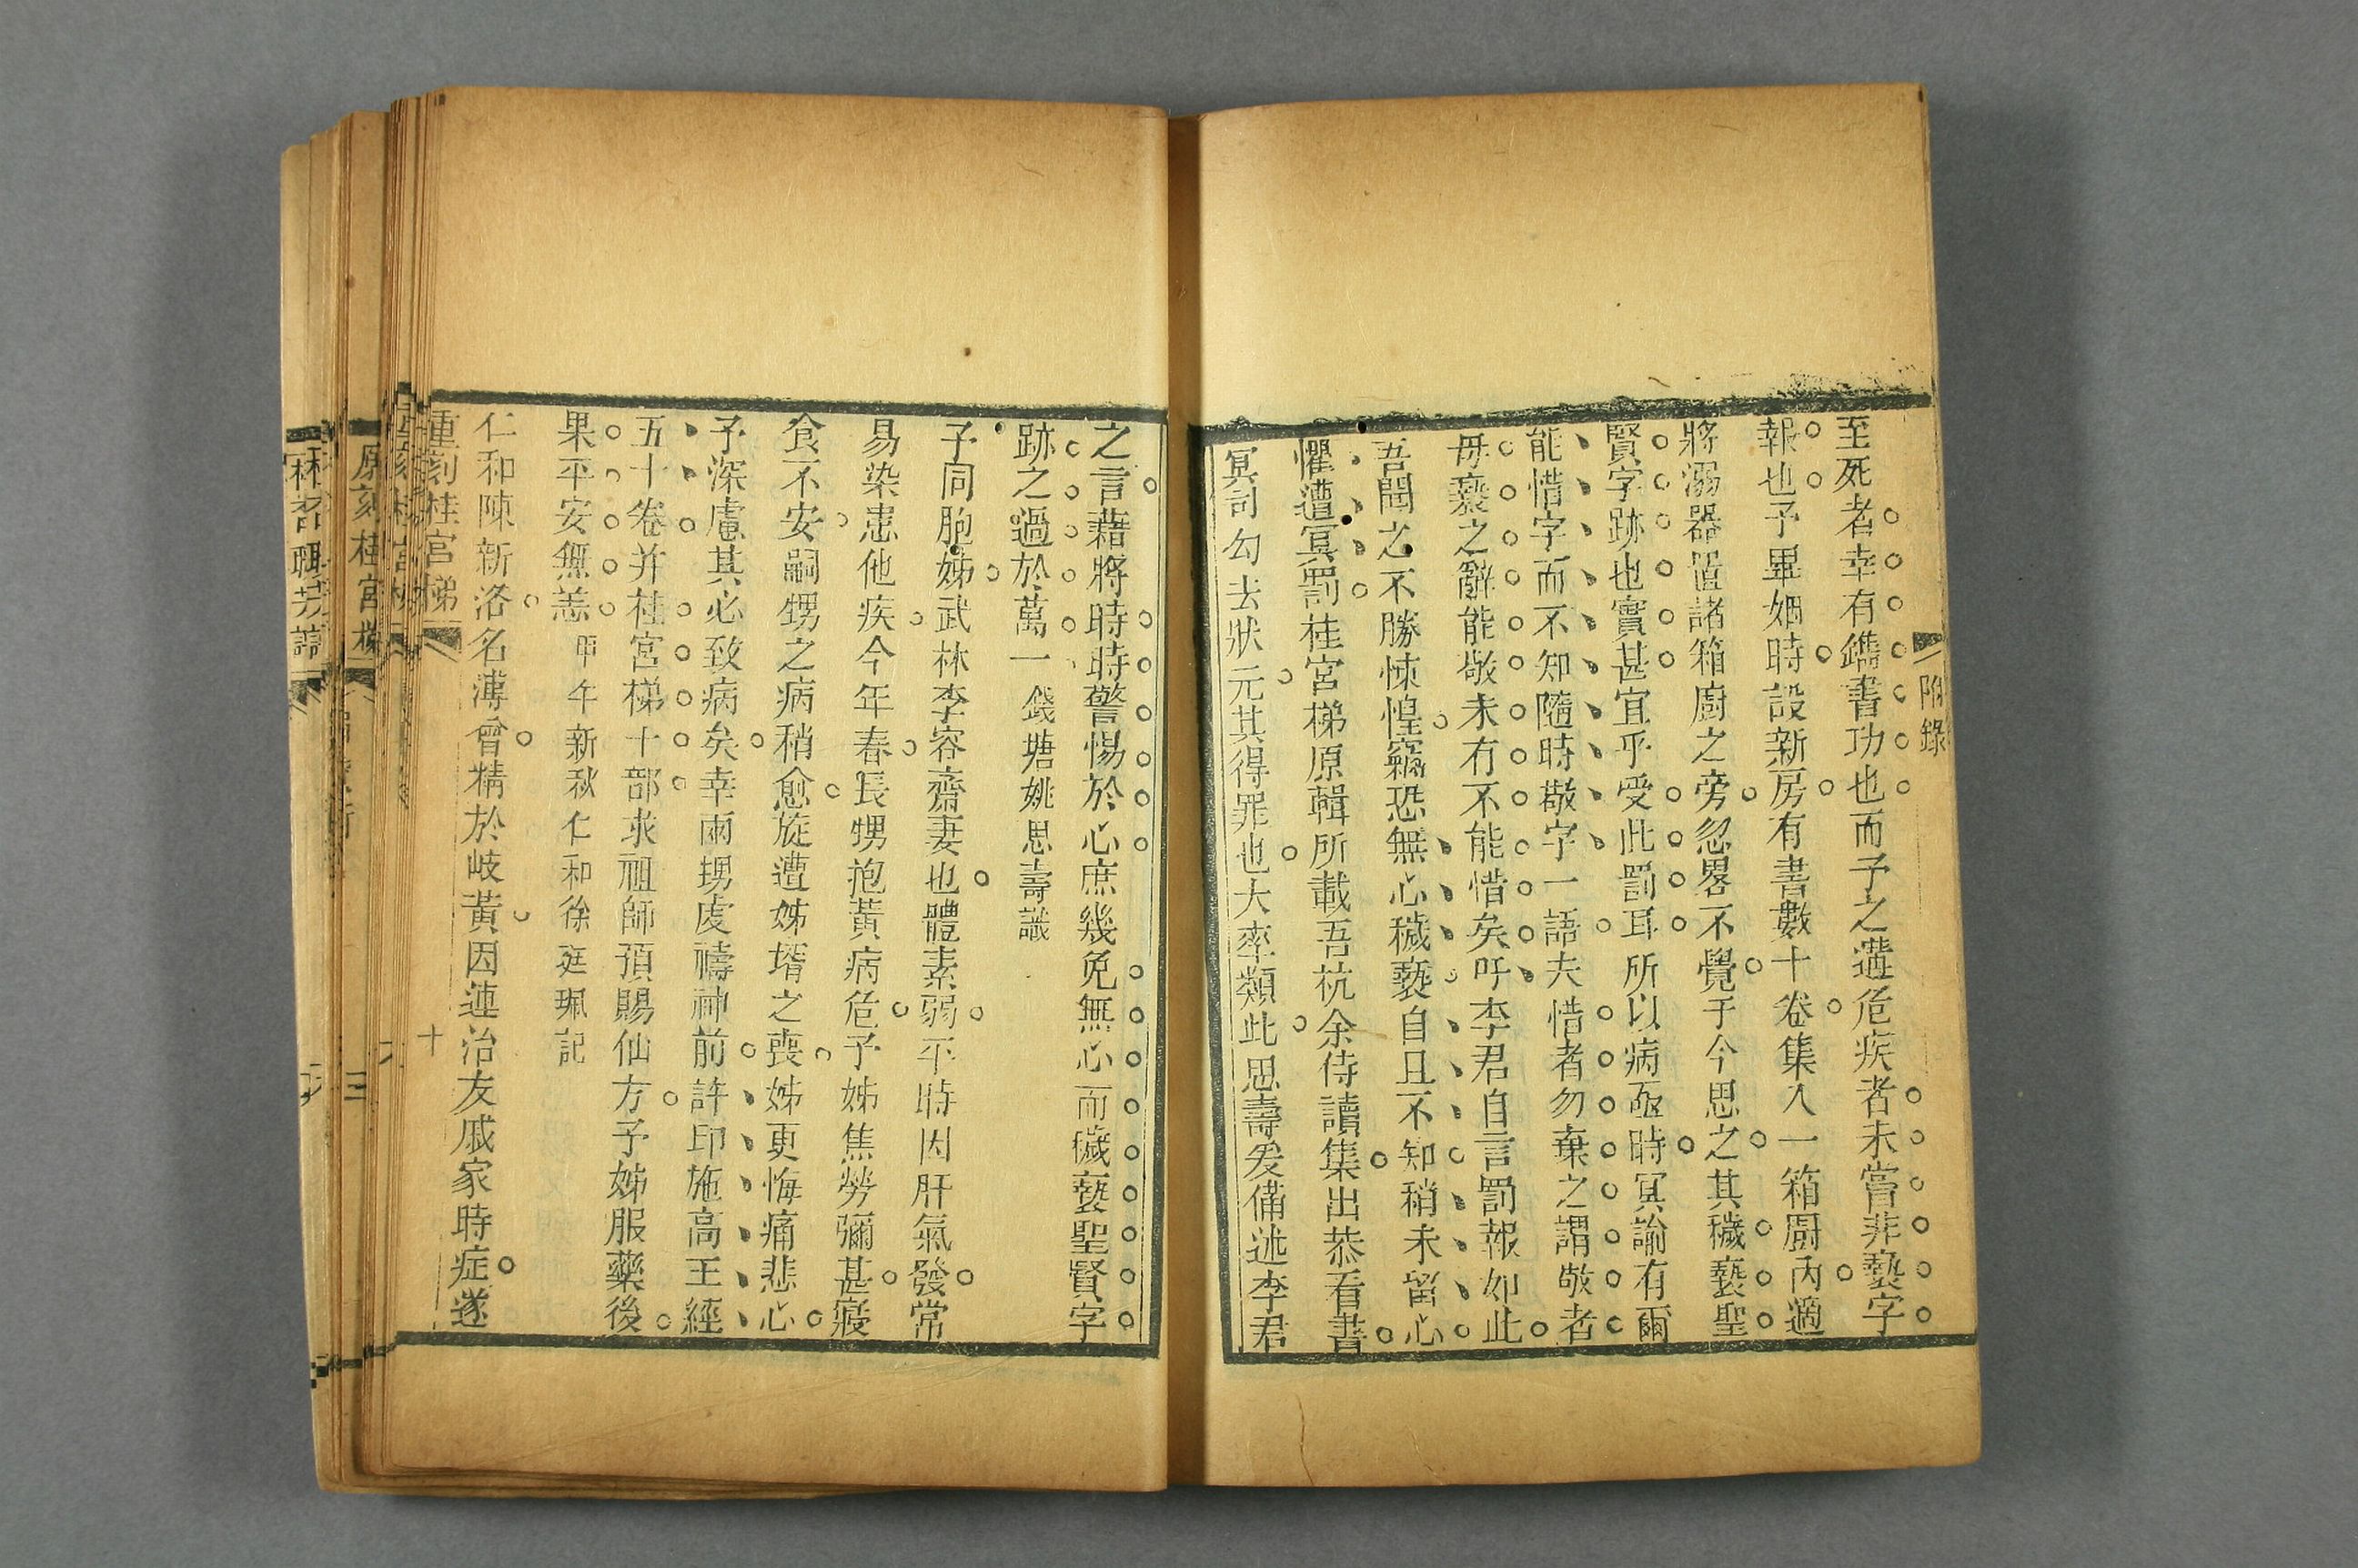 附錄
至死者幸有鐫書功也而予之遘危疾者未嘗非褻字
報也予畢姻時設新房有書數十卷集入一箱厨內適
將溺器置諸箱廚之旁忽畧不覺于今思之其穢褻聖
賢字跡也實甚宜乎受此罰耳所以病亟時冥諭有爾
能惜字而不知隨時敬字一語夫惜者勿棄之謂敬者
毋褻之辭能敬未有不能惜矣吁李君自言罰報如此
吾聞之不勝悚惶竊恐無心穢褻自且不知稍未畱心
懼遭冥罰桂宮梯原輯所載吾杭余侍讀集出恭看書
冥司勾去狀元其得罪也大率類此思壽爰備述李君
之言藉將時時警惕於心庶幾免無心而穢褻聖賢字
跡之過於萬一 錢塘姚思壽識
予同胞姊武林李容齋妻也體素弱平時因肝氣發常
易染患他疾今年春長甥抱黃病危予姊焦勞彌甚寢
食不安嗣甥之病稍愈旋遭姊壻之喪姊更悔痛悲心
予深慮其必致病矣幸兩甥虔禱神前許印施高王經
五十卷并桂宮梯十部求祖師預賜仙方予姊服藥後
果平安無恙 甲午新秋仁和徐珽珮記
仁和陳新洛名溥曾精於岐黃因連治友戚家時症遂
重刻桂宮梯
十
原刻桂宮梯
三